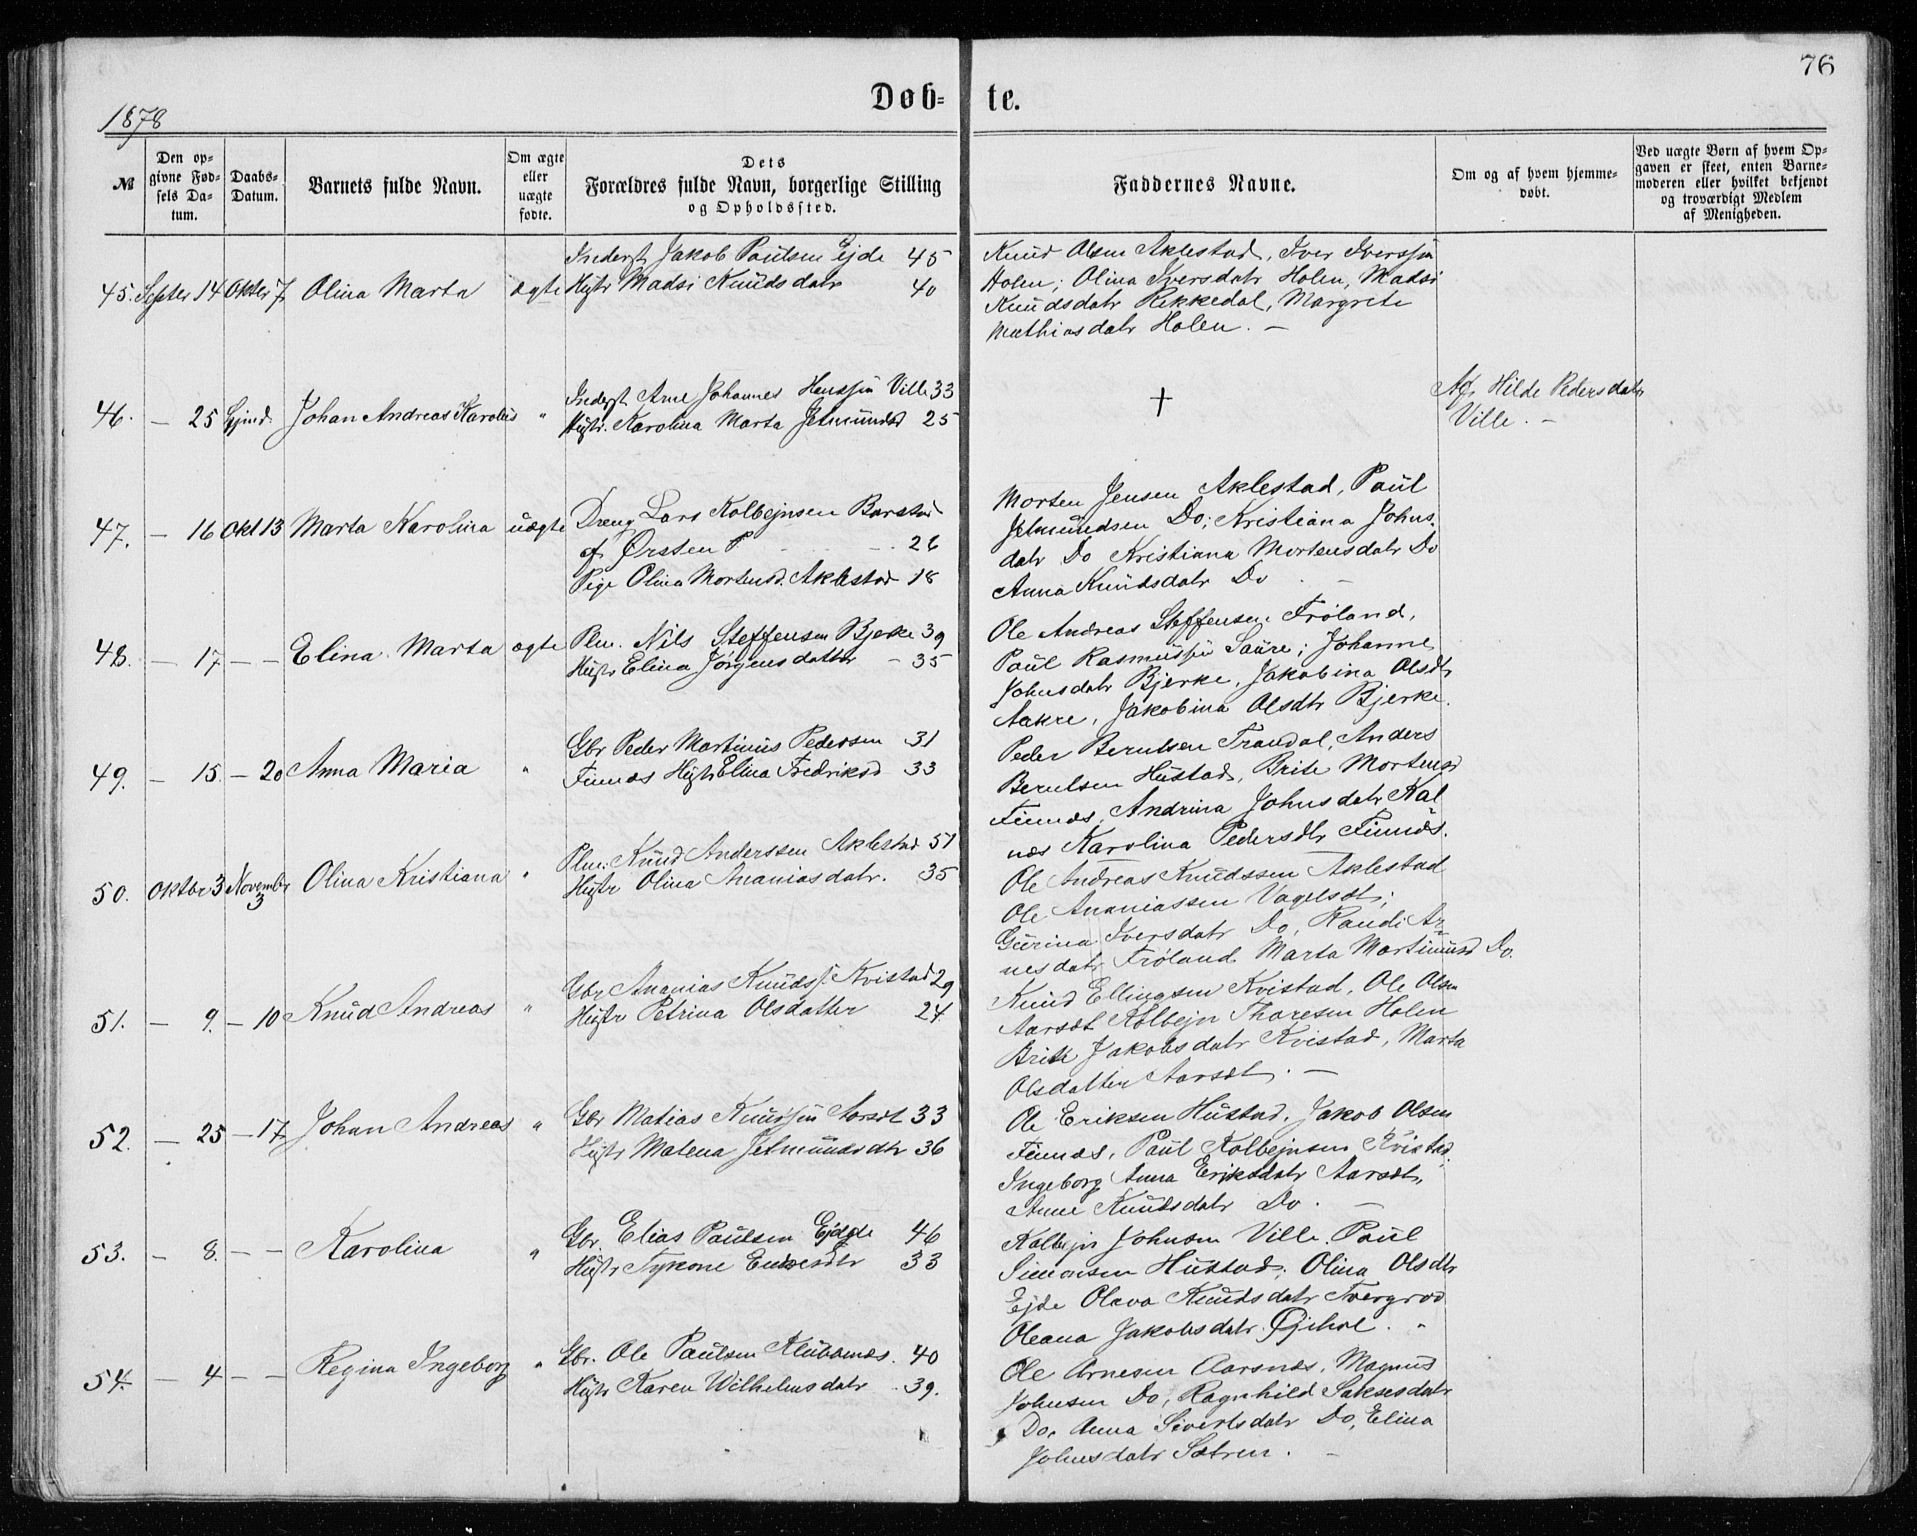 76
Døb-
te.
1878
№
Den op-
givne Fød-
sels Da-
tum.
Daabs-
Datum.
Barnets fulde Navn.
Om ægte
eller
uægte
fødte.
Dets
Forældres fulde Navn, borgerlige Stilling
og Opholdssted.
Faddernes Navne.
Om og af hvem hjemme-
døbt.
Ved uægte Børn af hvem Op-
gaven er skeet, enten Barne-
moderen eller hvilket bekjendt
og troværdigt Medlem
af Menigheden.
45. Septer 14 Okter 7 Olina Marta ægte
Inderst Jakob Paulsen Ejde 45
Hustr Madsi Knudsdatr 40
Knud Olsen Aklestad, Iver Iverssen
Holen; Olina Iversdatr Holen, Madsi
Knudsdatr Rekkedal, Margrete
Mathiasdatr Holen. —
46. — 25 Hjemd. Johan Andreas Karolus "
Inderst Arne Johannes Hanssen Ville 33
Hustr. Karolina Marta Jetmundsd 25
†
Af Hilde Pedersdatr
Ville. —
47. — 16 Okt 13 Marta Karolina uægte
Dreng Lars Kolbejnsen Barstad
af Ørsten P. 26
Pige Olina Mortensd. Aklestad 18
Morten Jensen Aklestad, Paul
Jetmundsen Do; Kristiana Johns
datr Do Kristiana Mortensdatr Do
Anna Knudsdatr Do —
48. — 17 — — Elina Marta ægte
Plm. Nils Steffensen Bjerke 39
Hustr Elina Jørgensdatter — 35
Ole Andreas Steffensen Frøland,
Paul Rasmussen Saure; Johanne
Johnsdatr Bjerke, Jakobina Olsdtr
Aakre, Jakobina Olsdtr Bjerke.
49. — 15. — 20 Anna Maria "
Gbr Peder Martinus Pedersen 31
Finnes Hustr Elina Fredriksd 33
Peder Berntsen Trandal, Anders
Berntsen Hustad, Brite Mortensd
Finnes, Andrina Johnsdatr Kal
nes Karolina Pedersdtr Finnes.
50. Oktbr 3 Novembr 3 Olina Kristiana "
Plm. Knud Anderssen Aklestad 51
Hustr Olina Ananiasdatr. 35
Ole Andreas Knudssen Aklestad
Ole Ananiassen Vagelsdt;
Gurina Iversdatr Do, Randi Ar
nesdatr Frøland Marta Martinusd Do.
51. — 9. — 10 Knud Andreas "
Gbr Ananias Knuds. Kvistad 29
Hustr Petrina Olsdatter 24
Knud Ellingsen Kvistad, Ole Olsen
Aarsdt Kolbejn Thoresen Holen
Brite Jakobsdatr Kvistad, Marta
Olsdatter Aarsdt. —
52. — 25 — 17 Johan Andreas "
Gbr Matias Knudssen Aarsdt 33
Hustr Matena Jetmundsdtr 36
Ole Eriksen Hustad, Jakob Olsen
Finnes, Paul Kolbejnsen Kvistad.
Ingeborg Anna Eriksdatr Aarsdt,
Anne Knudsdatr Do. —
53. — 8. — — Karolina "
Gbr. Elias Paulsen Ejde 46
Hustr 33
Kolbejn Johnsen Ville, Paul
Simonsen Hustad; Olina Olsdtr
Ejde Olava Knudsdatr
Oleana Jakobsdatr.
54. — 4 — — Regina Ingeborg "
Gbr. Ole Paulsen Klubbenes. 40
Hustr Karen Wilhelmsdatr 39.
Ole Arnesen Aarsnes, Magnus
Johnsen Do, Ragnhild Saksesdatr
Do, Anna Sivertsdatr Do, Elina
Johnsdatr Sætren. —